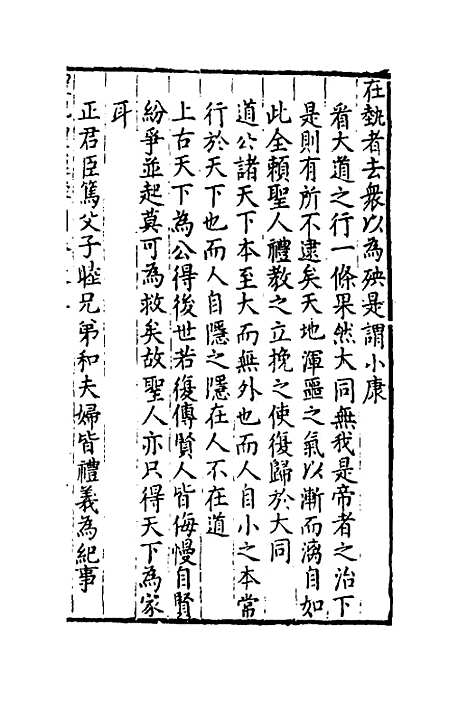 在埶者去衆以為殃是謂小康
看大道之行一條果然大同無我是帝者之治下
是則有所不逮矣天地渾噩之氣以漸而漓自如
此全賴聖人禮教之立挽之使復歸於大同
道公諸天下本至大而無外也而人自小之本常
行於天下也而人自隱之隱在人不在道
上古天下為公得後世若復傳賢人皆侮慢自賢
紛爭並起莫可為救矣故聖人亦只得天下為家
耳
正君臣篤父子睦兄弟和夫婦皆禮義為紀事